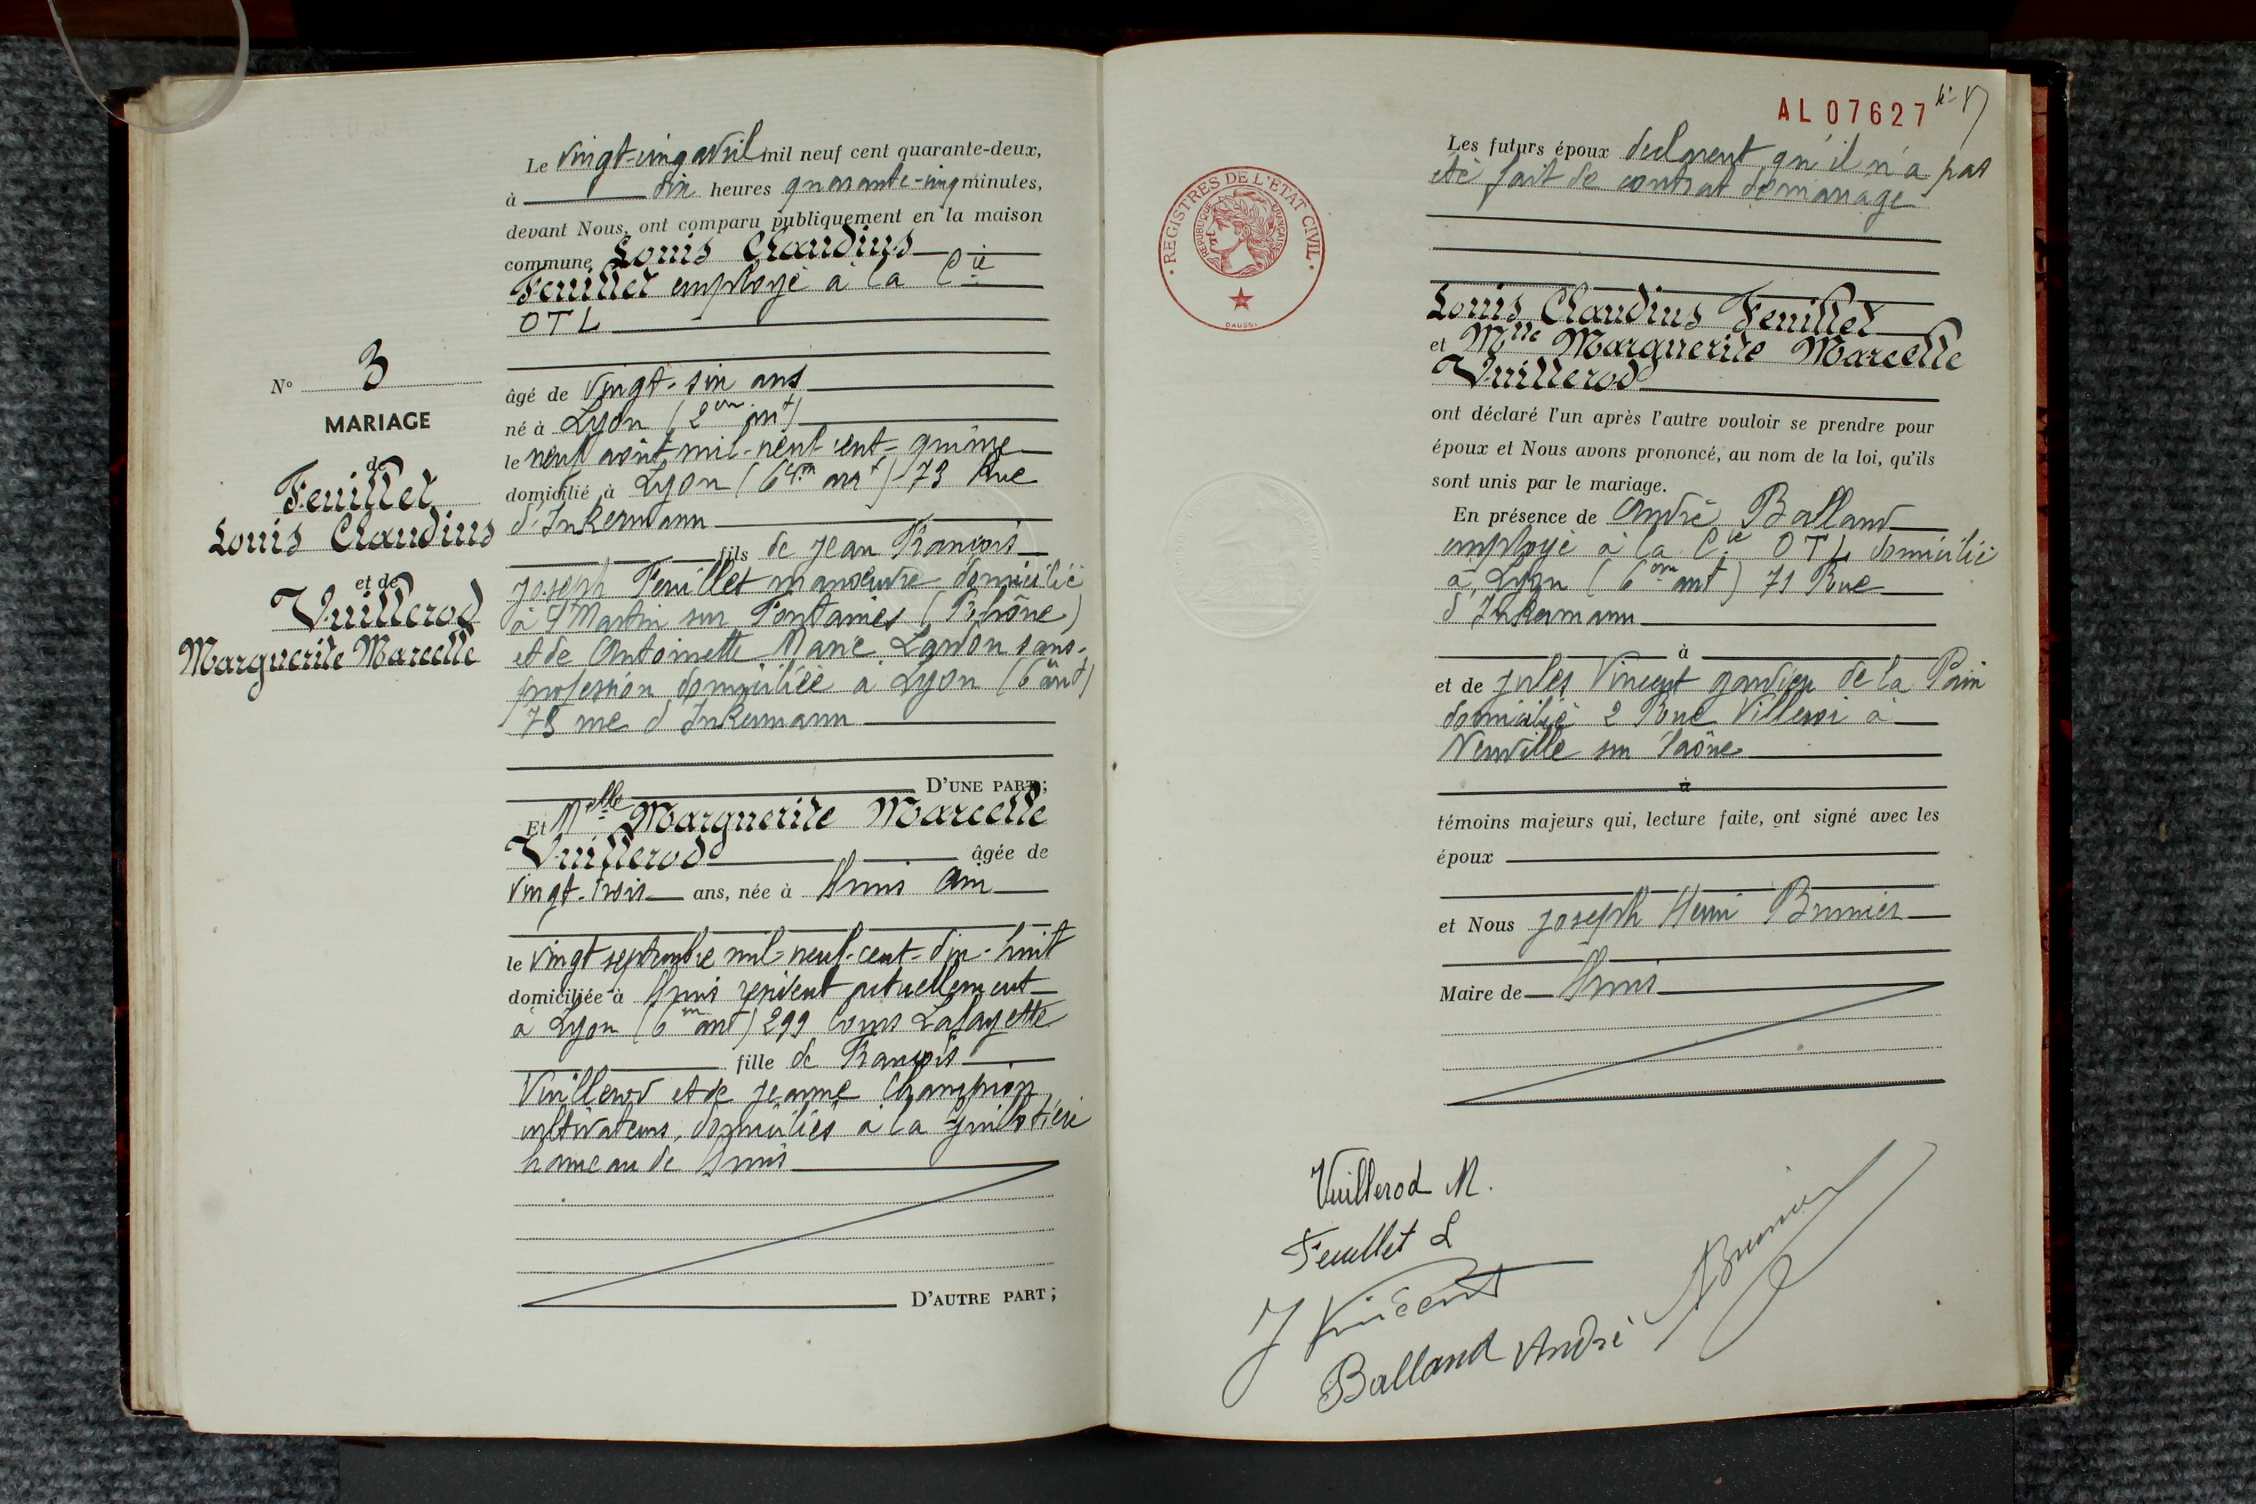 N° 3
MARIAGE
de
Feuillet
Louis Claudius
et de
Vuillerod
Marguerite Marcelle
Le vingt-cinq avril mil neuf cent quarante-deux,
à dix heures quarante-cinq minutes,
devant Nous, ont comparu publiquement en la maison
commune Louis Claudius
Feuillet employé à la Cie
OTL
âgé de vingt-six ans
né à Lyon (2em arrt)
le neuf août mil-neuf cent-quinze
domicilié à Lyon (6em arrt) 73 Rue
d'Inkermann
fils de Jean François
Joseph Feuillet manoeuvre domicilié
à St Martin sur Fontaines (Rhône)
et de Antoinette Marie Lardon sans
profession domiciliée à Lyon (6 arrt)
73 rue d'Inkermann
D'UNE PART;
Et Melle Marguerite Marcelle
Vuillerod âgée de
vingt-trois ans, née à Ain
le vingt septembre mil-neuf-cent-dix-huit
domiciliée à résident actuellement
à Lyon (6em arrt) 299 Cours Lafayette
fille de François
Vuillerod et de Jeanne Champion
cultivateurs, domiciliés à la Guillotière
hameau de
D'AUTRE PART;
AL 07627
Les futurs époux declarent qu'il n'a pas
été fait de contrat de mariage
REGISTRES DE L'ÉTAT CIVIL
RÉPUBLIQUE FRANÇAISE
Louis Claudius Feuillet
et Mlle Marguerite Marcelle
Vuillerod
ont déclaré l'un après l'autre vouloir se prendre pour
époux et Nous avons prononcé, au nom de la loi, qu'ils
sont unis par le mariage.
En présence de André Balland
employé à la Cie OTL domicilié
à Lyon (6em arrt) 71 Rue
d'Inkermann
à
et de Jules Vincent gardien de la Paix
domicilié 2 Rue Villeroi à
Neuville sur Saône
à
témoins majeurs qui, lecture faite, ont signé avec les
époux
et Nous Joseph Henri Brunier
Maire de
Vuillerod M.
Feuillet L
J Vincent
Balland André
Brunier